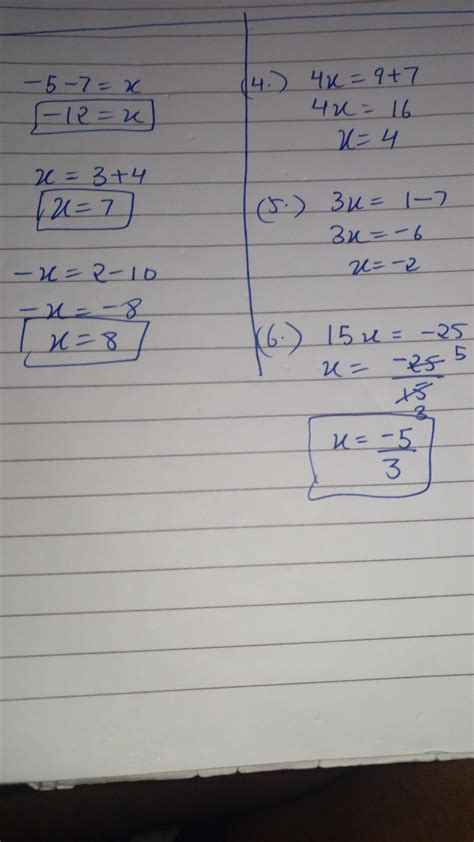 -5-7=x
-12=x
x=3+4
x=7
-x=2-10
-x=-8
x=8
(4.) 4x=9+7
4x=16
x=4
(5.) 3x= 1-7
3x=-6
x=-2
(6.) 15x = -25
x= -25 5
15
3
x= -5
3